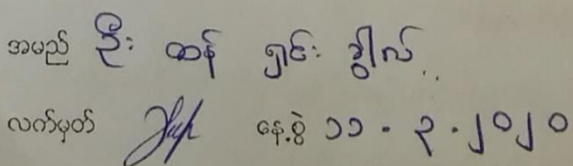 အမည် ဦး ထန် ရှင်း ခွါလ်
လက်မှတ် နေ့စွဲ ၁၁ - ၃ - ၂၀၂၀